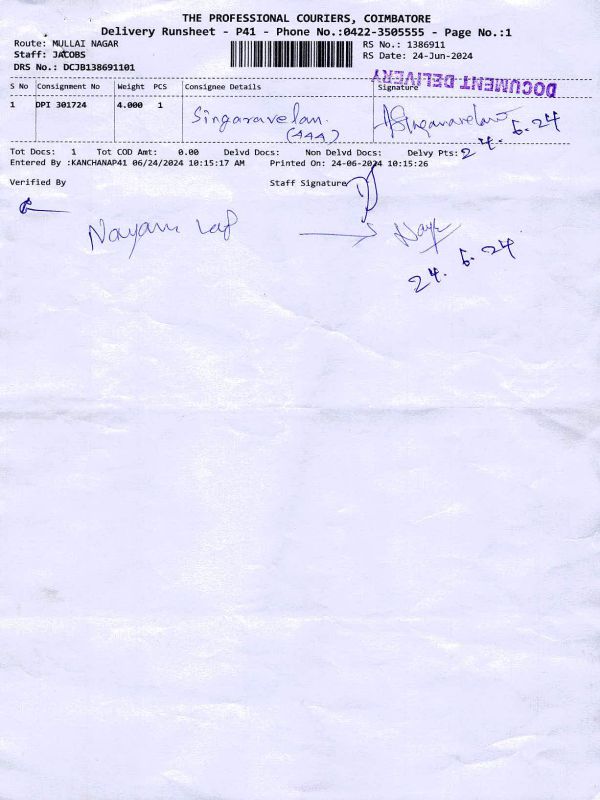 THE PROFESSIONAL COURIERS, COIMBATORE
Delivery Runsheet - P41 - Phone No.:0422-3505555 - Page No.:1
Route: MULLAI NAGAR
RS No.: 1386911
Staff: JACOBS
RS Date: 24-Jun-2024
DRS No.: DCJB138691101
DOCUMENT DELIVERY
S No Consignment No Weight PCS Consignee Details Signature
1 DPI 301724 4.000 1 Singaravelan
(AAA)
Singaravelan
24.6.24
Tot Docs: 1 Tot COD Amt: 0.00 Delvd Docs: Non Delvd Docs: Delvy Pts:
Entered By :KANCHANAP41 06/24/2024 10:15:17 AM Printed On: 24-06-2024 10:15:26
Verified By Staff Signature
24.6.24